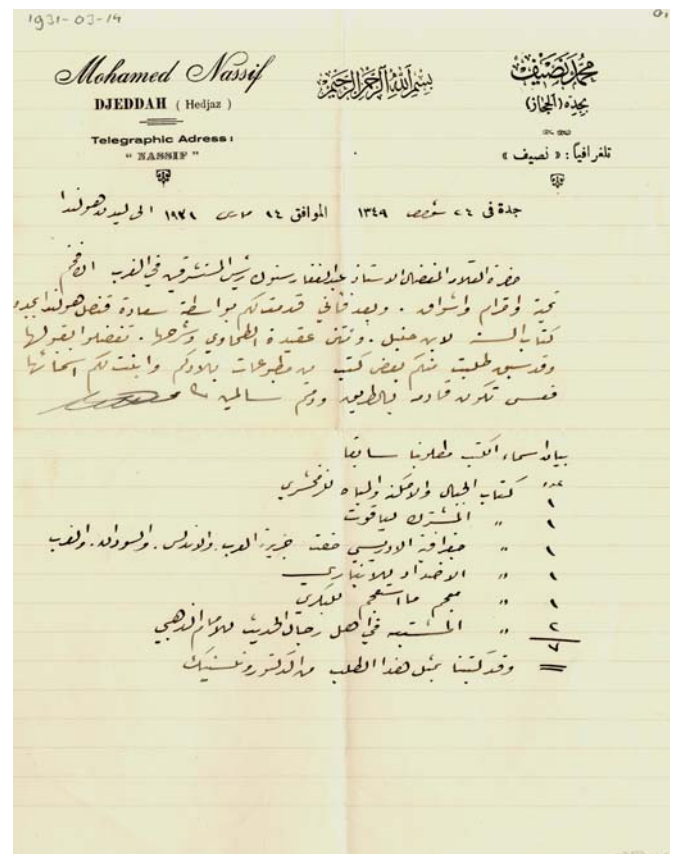 1931-03-14
Mohamed Nassif
DJEDDAH ( Hedjaz )
Telegraphic Adress :
" NASSIF "
بسم الله الرحمن الرحيم
محمد نصيف
بجدة (الحجاز)
تلغرافيا : « نصيف »
جدة فى ٢٤ ١٣٤٩ الموافق ١٤ مارس ١٩٣١ الى ليدن هولندا
حضرة العلامة المفضال الاستاذ عبدالغفار رئيس المستشرقين في الغرب
تحية واشواق . وبعد فاني قدمت لكم بواسطة سعادة قنصل هولندا بجده
كتاب السنة لابن حنبل . ومتن عقيدة الطحاوي وشرحها . تفضلوا بقبولها
وقد سبق طلبت منكم بعض كتب من مطبوعات بلادكم اسمائها
فعسى تكون قادمة بالطريق ودمتم سالمين
بيان اسماء الكتب مطلوبنا سابقا
عدد
١ كتاب الجبال والامكنة والمياه للزمخشري
١ " المشترك لياقوت
١ " جغرافية الادريسي جزيرة العرب . والاندلس . والسودان . والغرب
١ " الاضداد للانباري
١ " معجم ما استعجم للبكري
٢ " المشتبه في رجال الحديث للامام الذهبي
٧
وقد كتبنا بمثل هذا الطلب من الدكتور ونسنيك